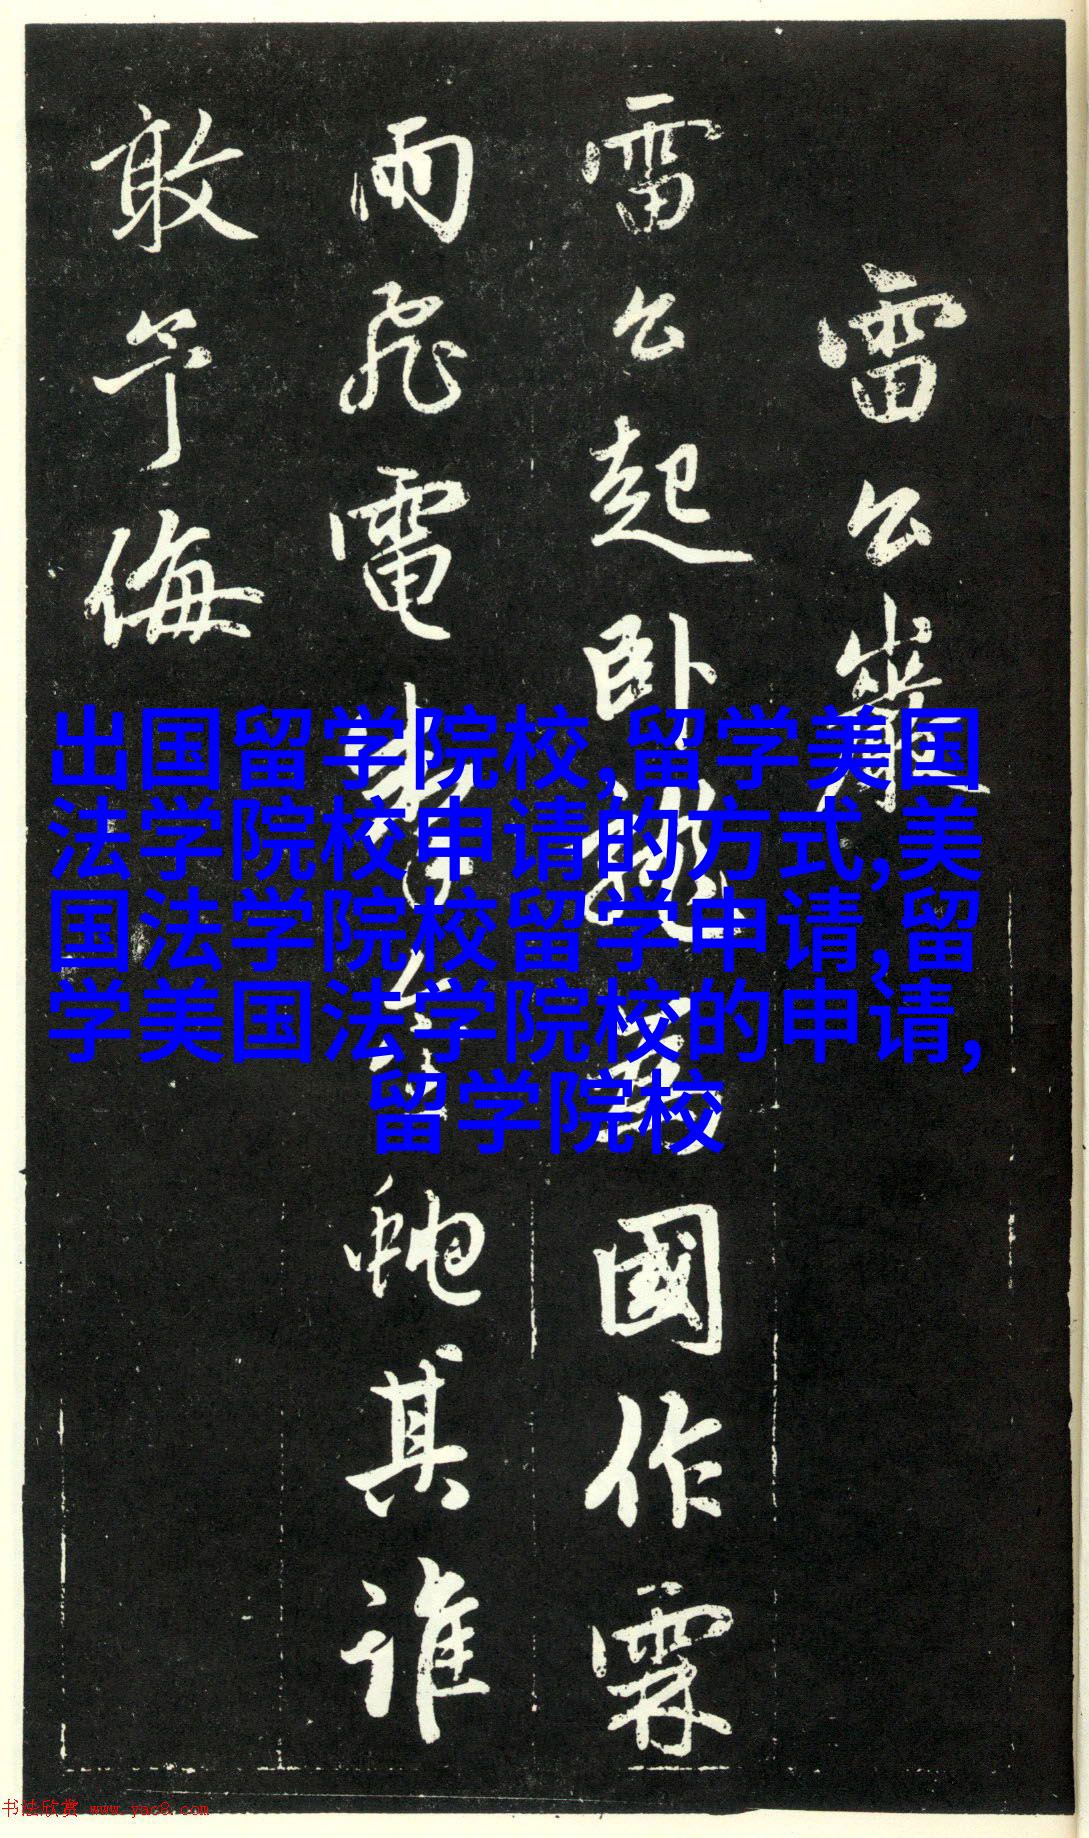 雷公巖
雷公起卧
國作霖
雨飛電
蛇其誰
敢乍侮
出国留学院校,留学美国
法学院校申请的方式,美
国法学院校留学申请,留
学美国法学院校的申请,
留学院校
书法欣赏 www.yac8.com